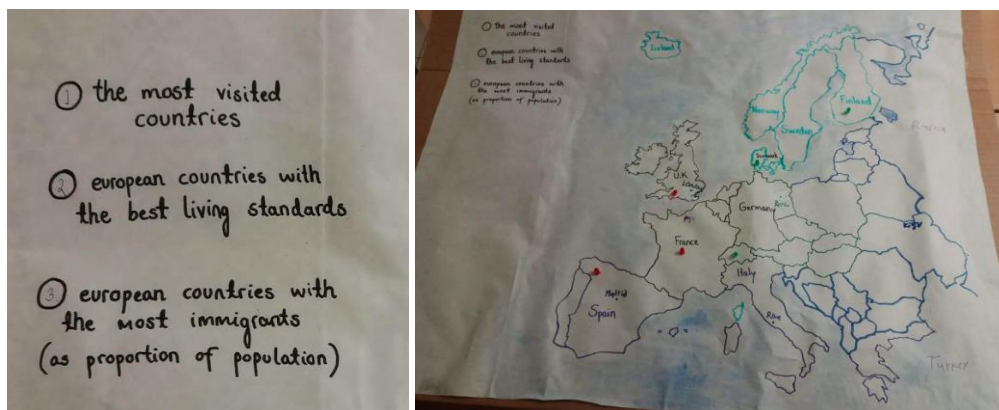 ① the most visited
countries
② european countries with
the best living standards
③ european countries with
the most immigrants
(as proportion of population)
① the most visited
countries
② european countries with
the best living standards
③ european countries with
the most immigrants
(as proportion of population)
Iceland
Norway
Sweden
Finland
Russia
Denmark
U.K
Germany
France
Italy
Madrid
Spain
Rome
Turkey